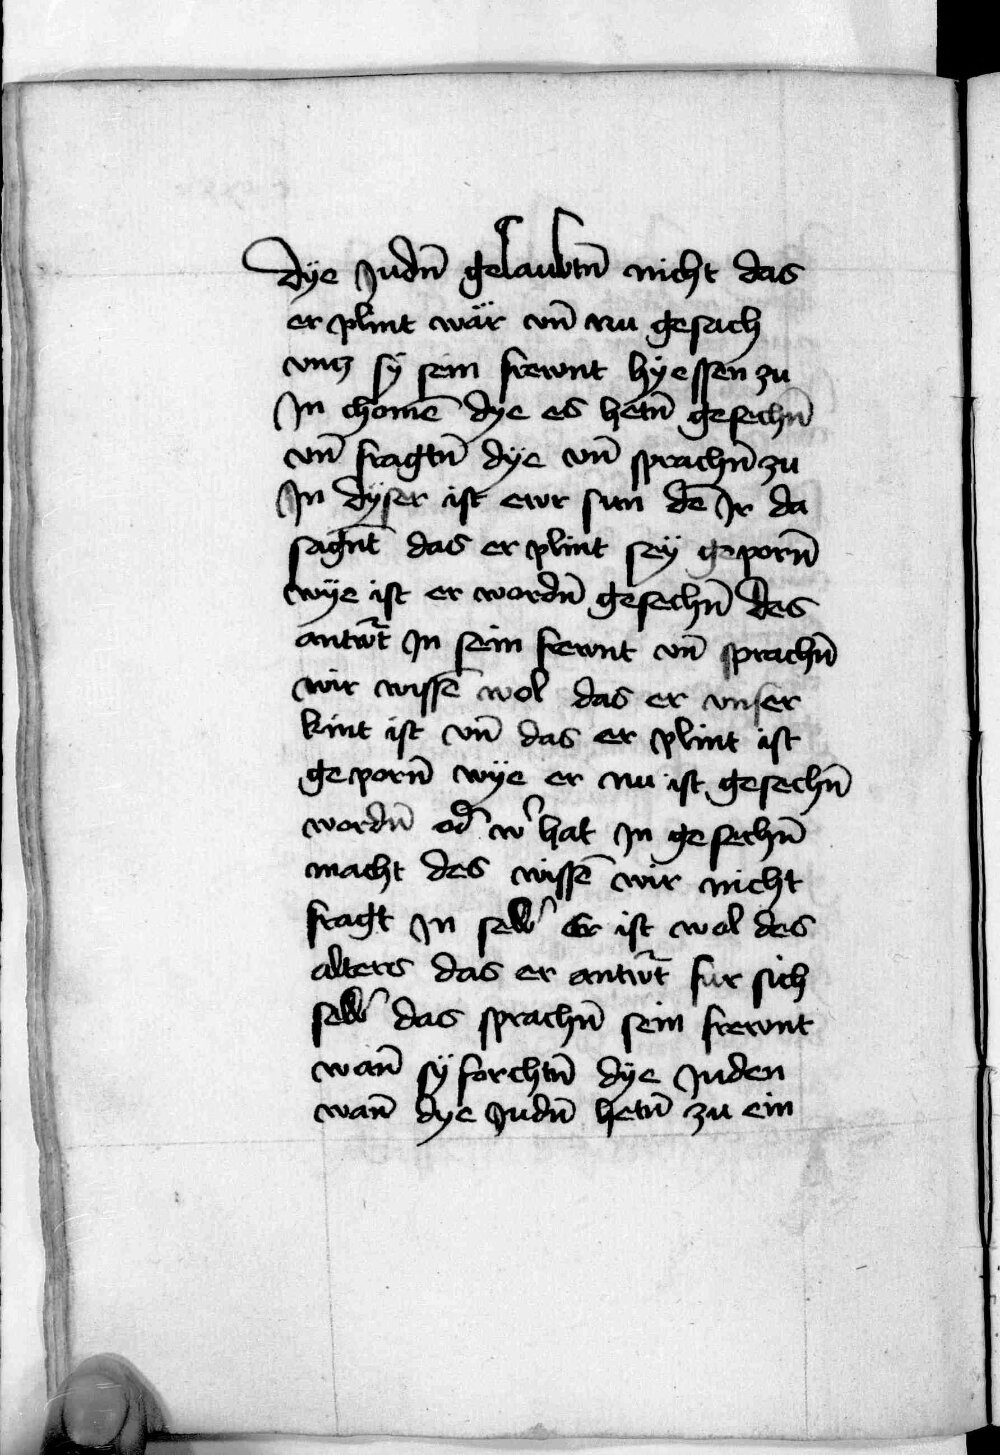 Dÿe Judn̄ gelaubtn̄ nicht das
er plint wär vn̄ nu gesach
vncz sÿ sein frewnt hÿessen zu
Jn chomē dye es hetn̄ gesechn̄
vn̄ fragtn̄ dÿe vn̄ sprachn̄ zu
Jn dÿser ist ewr sun dē Jr da
sagn̄t das er plint seÿ geporn̄
wÿe ist er wordn̄ gesechn̄ des
antw̄t Jn sein frewnt vn̄ sprachn̄
wir wissē wol das er vnser
kint ist vn̄ das er plint ist
geporn̄ wÿe er nu ist gesechn̄
wordn̄ od̄ w̄ hat Jn gesechn̄
macht des wissē wir nicht
fragt Jn selb̄ Er ist wol des
alters das er antw̄t fur sich
selb̄ das sprachn̄ sein frewnt
wan̄ sÿ forchtn̄ dÿe Juden
wan̄ dye Judn̄ hetn̄ zu ein